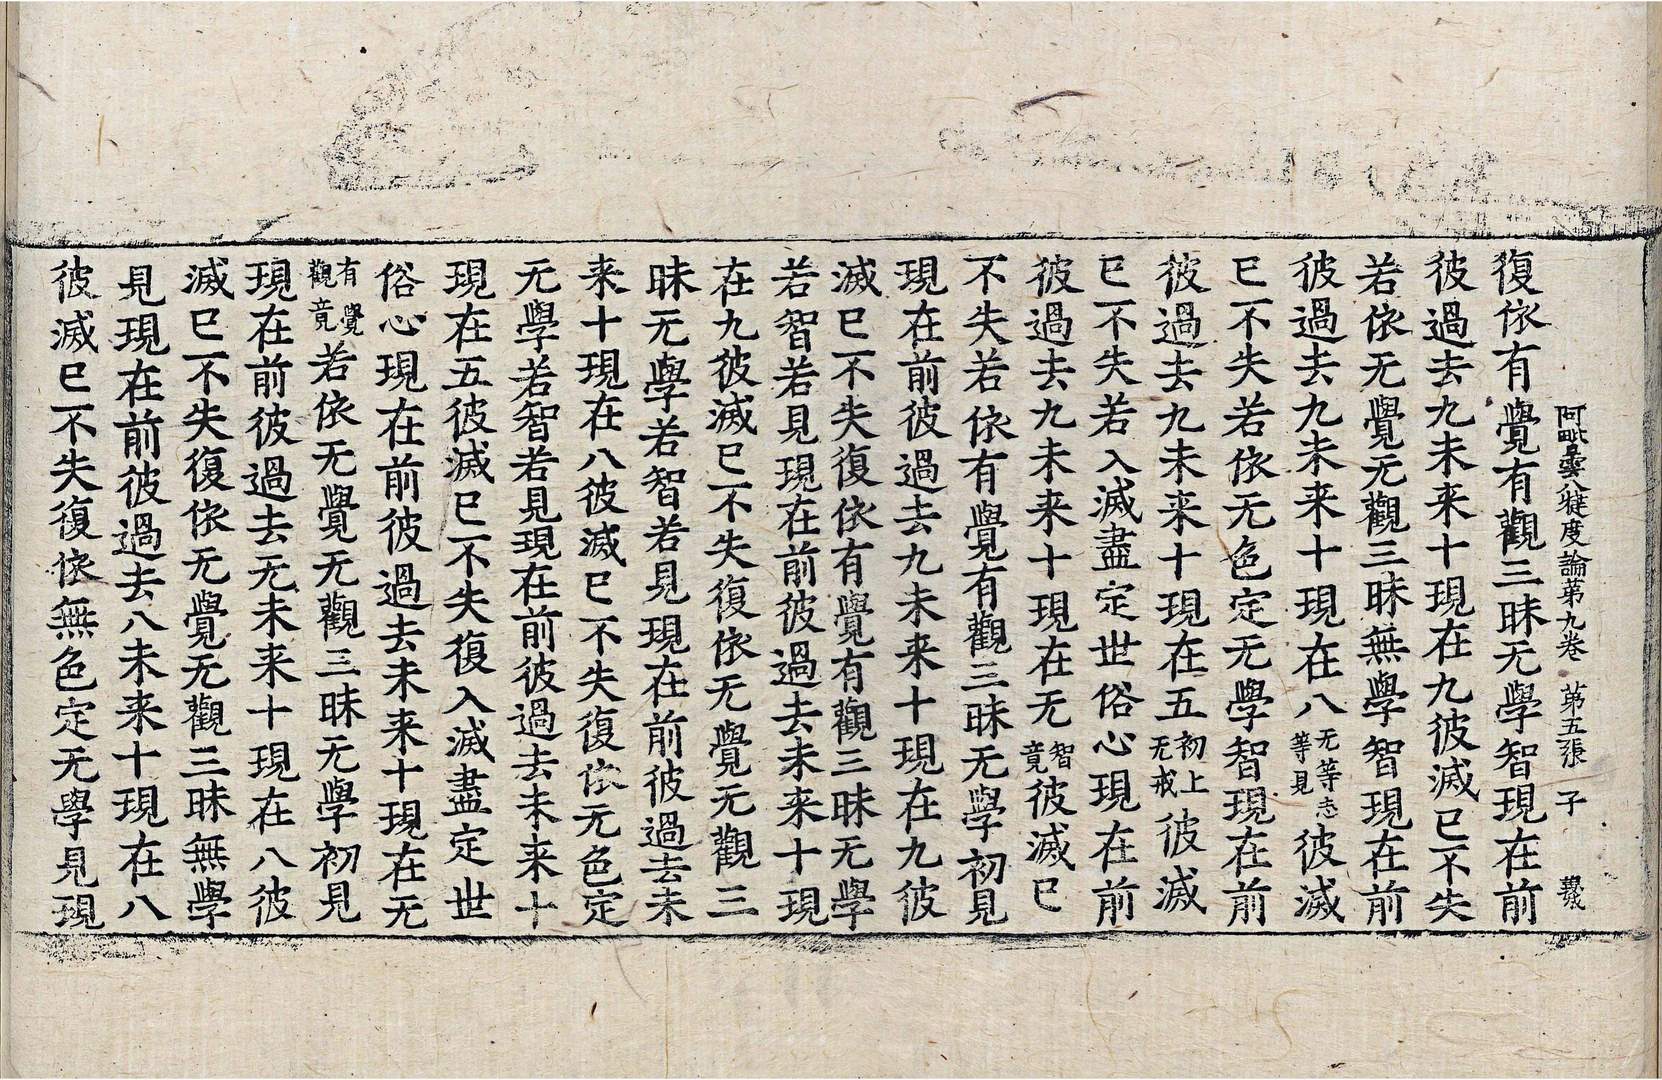 阿毗曇八犍度論苐九卷 苐五張 子
復依有覺有觀三昧无學智現在前
彼過去九未来十現在九彼滅已不失
若依无覺无觀三昧無學智現在前
彼過去九未来十現在八无等志等見彼滅
已不失若依无色定无學智現在前
彼過去九未来十現在五初上无戒彼滅
已不失若入滅盡定世俗心現在前
彼過去九未来十現在无智竟彼滅已
不失若依有覺有觀三昧无學初見
現在前彼過去九未来十現在九彼
滅已不失復依有覺有觀三昧无學
若智若見現在前彼過去未来十現
在九彼滅已不失復依无覺无觀三
昧无學若智若見現在前彼過去未
来十現在八彼滅已不失復依无色定
无學若智若見現在前彼過去未来十
現在五彼滅已不失復入滅盡定世
俗心現在前彼過去未来十現在无
有覺觀竟若依无覺无觀三昧无學初見
現在前彼過去无未来十現在八彼
滅已不失復依无覺无觀三昧無學
見現在前彼過去八未来十現在八
彼滅已不失復依無色定无學見現